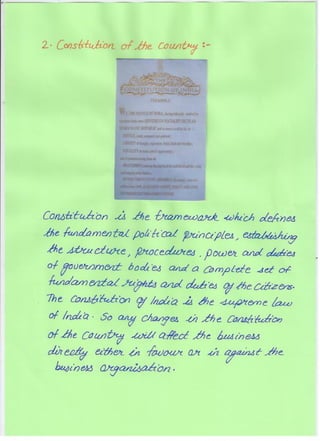 2. Constitution of the Country :-
THE
CONSTITUTION OF INDIA
PREAMBLE
WE, THE PEOPLE OF INDIA,
Constitution is the framework which defines
the fundamental political principles, establishing
the structure, procedures, power and duties
of government bodies and a complete set of
fundamental rights and duties of the citizens.
The Constitution of India is the supreme law
of India. So any changes in the Constitution
of the Country will affect the business
directly either in favour or in against the
business organisation.